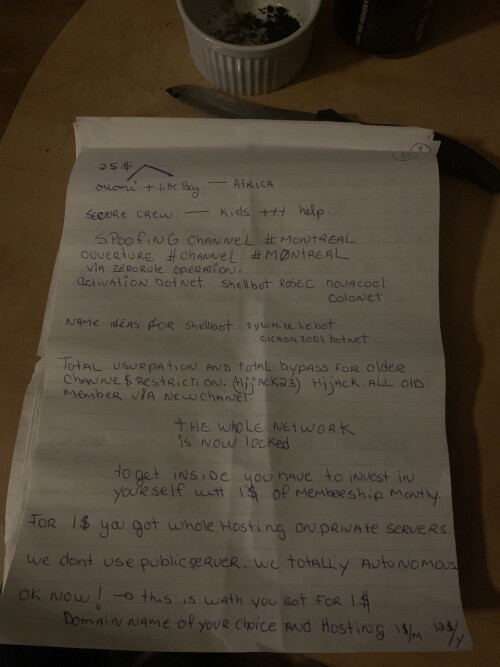 25$
+ Little Boy — AFRICA
SECURE CREW — KIDS +++ help.
SPOOFING CHANNEL #MONTREAL
OUVERTURE #CHANNEL #MØNTREAL
VIA ZERORULE OPERATION.
activation botnet shellbot ROSEC novacool
colonet
NAME IDEAS FOR shellbot sywhiteliebot
CICADA3001 botnet
TOTAL USURPATION AND TOTAL bypass FOR OLDER
CHANNELS RESTRICTION. (HIJACK23) HIJACK ALL OLD
MEMBER VIA NEWCHANEL
THE WHOLE NETWORK
is NOW locked
to get INSIDE you HAVE to INVEST IN
yourself witt 1$ of Membership Monthly.
FOR 1$ you got whole Hosting ON PRIVATE SERVERS.
we dont use publicserver. we totally AUTONOMOUS
OK NOW! → this is wath you got FOR 1$
DOMAIN NAME of your choice AND HOSTING 1$/M 12$/Y